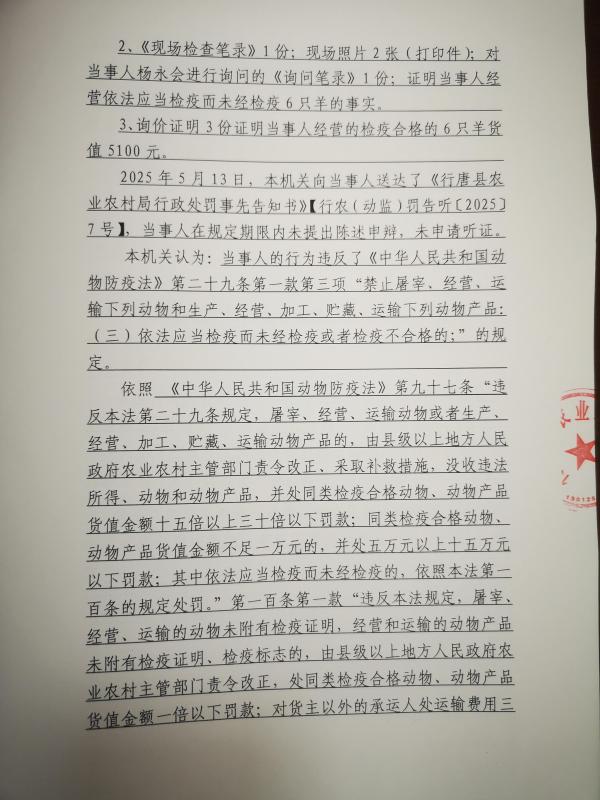 2、《现场检查笔录》1份；现场照片2张（打印件）；对
当事人杨永会进行询问的《询问笔录》1份；证明当事人经
营依法应当检疫而未经检疫6只羊的事实。
3、询价证明3份证明当事人经营的检疫合格的6只羊货
值5100元。
2025年5月13日，本机关向当事人送达了《行唐县农
业农村局行政处罚事先告知书》【行农（动监）罚告听〔2025〕
7号】，当事人在规定期限内未提出陈述申辩，未申请听证。
本机关认为：当事人的行为违反了《中华人民共和国动
物防疫法》第二十九条第一款第三项“禁止屠宰、经营、运
输下列动物和生产、经营、加工、贮藏、运输下列动物产品：
（三）依法应当检疫而未经检疫或者检疫不合格的；”的规
定。
依照 《中华人民共和国动物防疫法》第九十七条“违
反本法第二十九条规定，屠宰、经营、运输动物或者生产、
经营、加工、贮藏、运输动物产品的，由县级以上地方人民
政府农业农村主管部门责令改正、采取补救措施，没收违法
所得、动物和动物产品，并处同类检疫合格动物、动物产品
货值金额十五倍以上三十倍以下罚款；同类检疫合格动物、
动物产品货值金额不足一万元的，并处五万元以上十五万元
以下罚款；其中依法应当检疫而未经检疫的，依照本法第一
百条的规定处罚。”第一百条第一款“违反本法规定，屠宰、
经营、运输的动物未附有检疫证明，经营和运输的动物产品
未附有检疫证明、检疫标志的，由县级以上地方人民政府农
业农村主管部门责令改正，处同类检疫合格动物、动物产品
货值金额一倍以下罚款；对货主以外的承运人处运输费用三
业